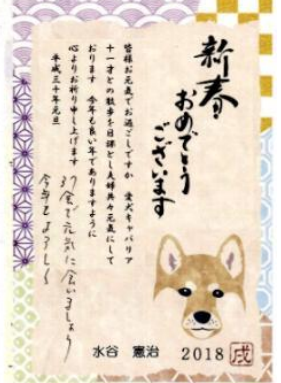 新春
おめでとう
ございます
皆様お元気でお過ごしですか 愛犬キャバリア
十一才との散歩を日課とし夫婦共々元気にして
おります 今年も良い年でありますように
心よりお祈り申し上げます
平成三十年元旦
会で元気に会いましょう
今年もよろしく
水谷 憲治
2018
戌